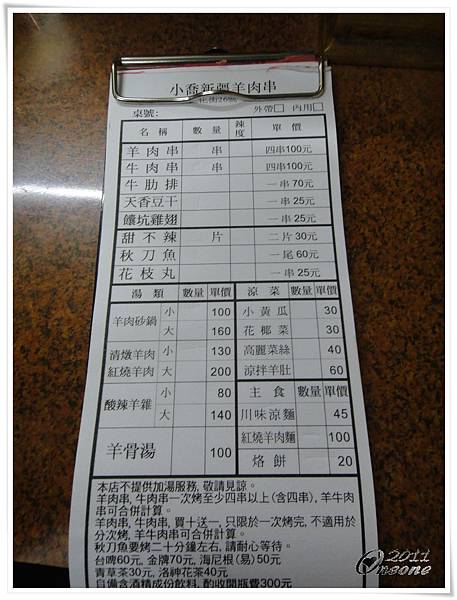 小喬新疆羊肉串
化街26號
桌號: 外帶□ 內用□
名稱 數量 辣度 單價
羊肉串 串 四串100元
牛肉串 串 四串100元
牛肋排 一串70元
天香豆干 一串25元
饢坑雞翅 一串25元
甜不辣 片 二片30元
秋刀魚 一尾60元
花枝丸 一串25元
湯類 數量 單價
羊肉砂鍋 小 100
大 160
清燉羊肉 小 130
紅燒羊肉 大 200
酸辣羊雜 小 80
大 140
羊骨湯 100
涼菜 數量 單價
小黃瓜 30
花椰菜 30
高麗菜絲 40
涼拌羊肚 60
主食 數量 單價
川味涼麵 45
紅燒羊肉麵 100
烙餅 20
本店不提供加湯服務, 敬請見諒。
羊肉串, 牛肉串一次烤至少四串以上(含四串), 羊牛肉
串可合併計算。
羊肉串, 牛肉串, 買十送一, 只限於一次烤完, 不適用於
分次烤, 羊牛肉串可合併計算。
秋刀魚要烤二十分鐘左右, 請耐心等待。
台啤60元, 金牌70元, 海尼根(易)50元
青草茶30元, 洛神花茶40元
自備含酒精成份飲料, 酌收開瓶費300元
2011
Oneone